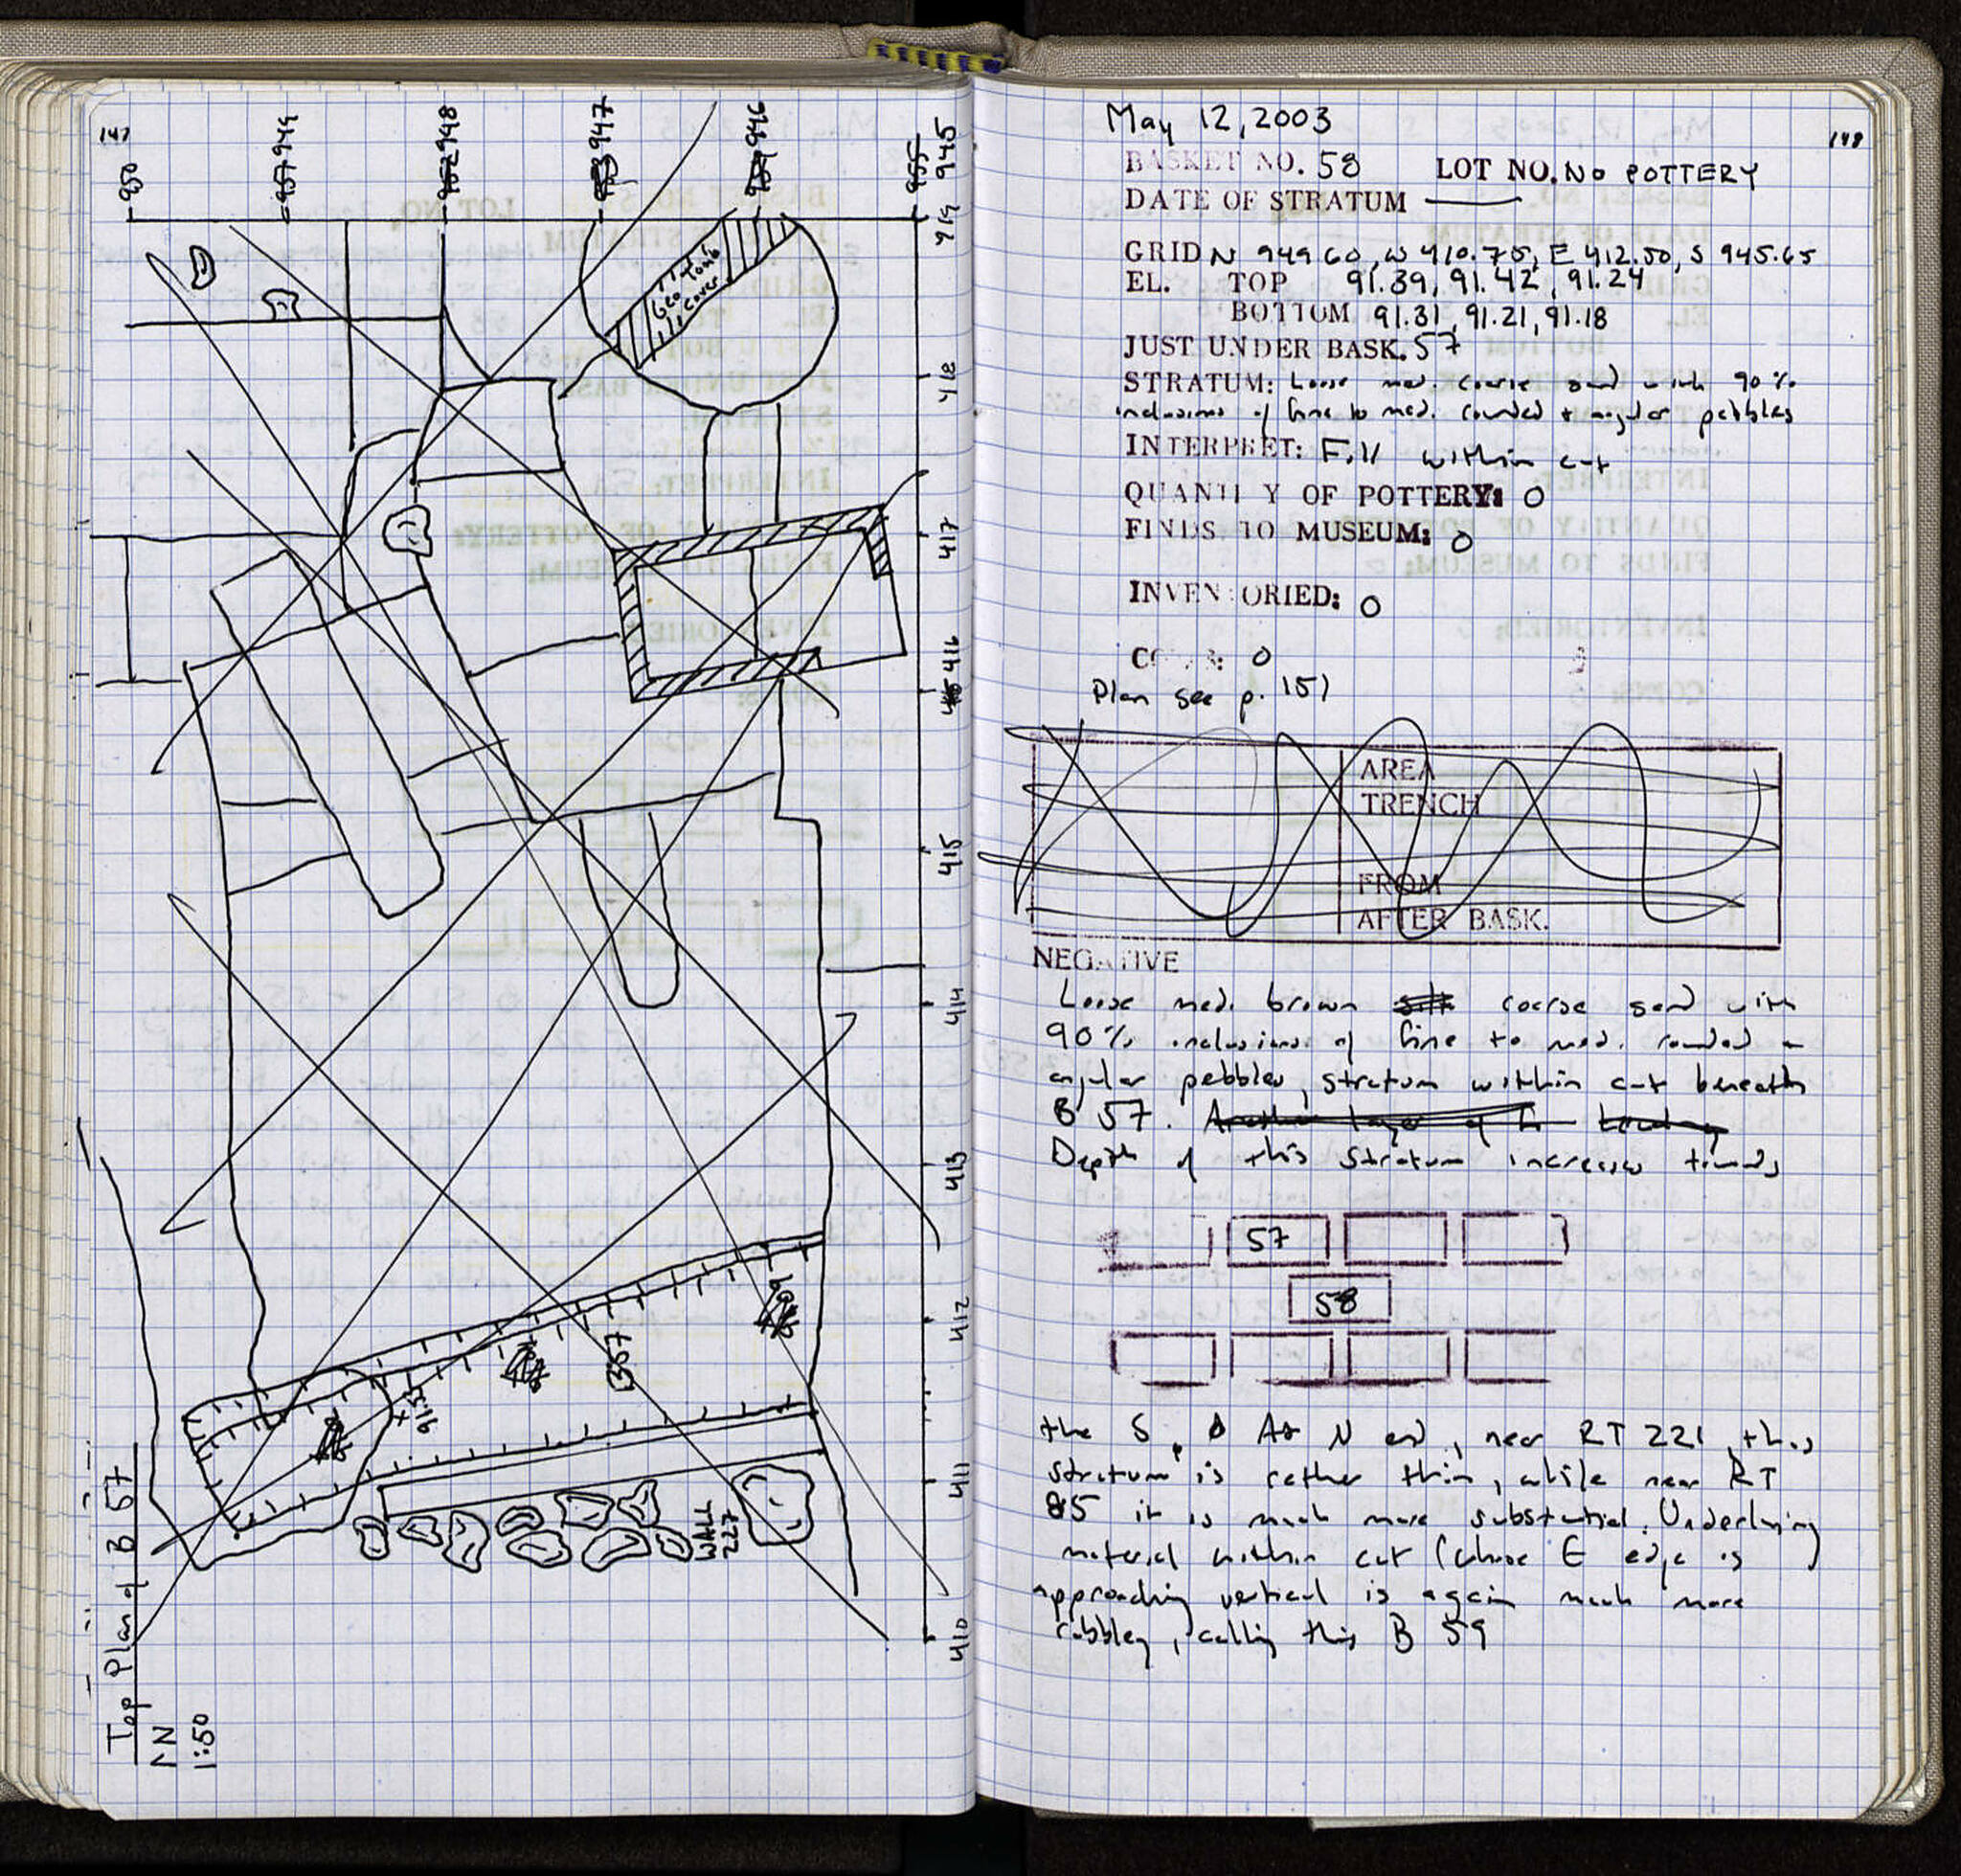 147
950
951 949
952 948
953 947
954 946
955 945
419
418
417
416
415
414
413
412
411
410
Geo Tomb
cover
B57
91.51
WALL
227
Top Plan of B 57
N
1:50
May 12, 2003
148
BASKET NO. 58 LOT NO. NO POTTERY
DATE OF STRATUM ———
GRID N 949.60, W 410.75, E 412.50, S 945.65
EL. TOP 91.39, 91.42, 91.24
BOTTOM 91.31, 91.21, 91.18
JUST UNDER BASK. 57
STRATUM: Loose med. coarse sand with 90%
inclusions of fine to med. rounded + angular pebbles
INTERPRET: Fill within cut
QUANTITY OF POTTERY: 0
FINDS TO MUSEUM: 0
INVENTORIED: 0
COINS: 0
Plan see p. 151
AREA
TRENCH
FROM
AFTER BASK.
NEGATIVE
Loose med. brown silt coarse sand with
90% inclusions of fine to med. rounded +
angular pebbles, stratum within cut beneath
B 57. Another layer of
Depth of this stratum increases towards
57
58
the S. At N end, near RT 221, this
stratum is rather thin, while near RT
85 it is much more substantial. Underlying
material within cut (whose E edge is
approaching vertical is again much more
cobbley, calling this B 59